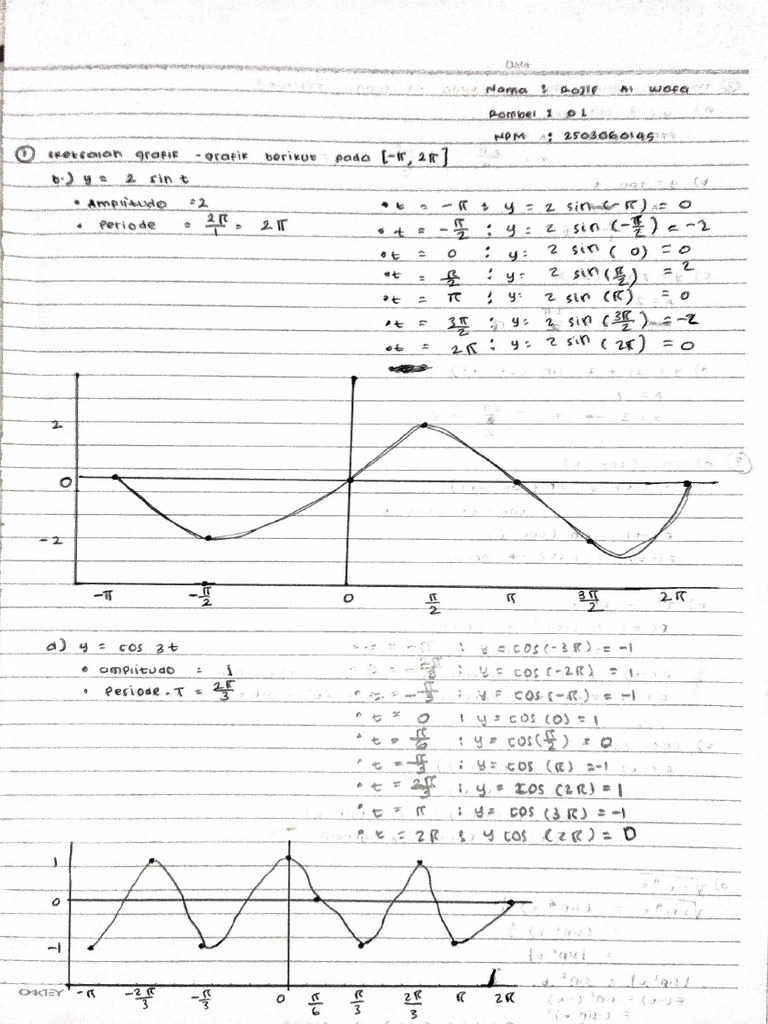 Date
Nama : Rojif Al Wafa
Rombel : 01
NPM : 2503060145
① sketsalah grafik - grafik berikut pada [-π, 2π]
b.) y = 2 sin t
• Amplitudo = 2
• Periode = 2π/1 = 2π
• t = -π : y = 2 sin (-π) = 0
• t = -π/2 : y = 2 sin (-π/2) = -2
• t = 0 : y = 2 sin ( 0) = 0
• t = π/2 : y = 2 sin (π/2) = 2
• t = π : y = 2 sin (π) = 0
• t = 3π/2 : y = 2 sin (3π/2) = -2
• t = 2π : y = 2 sin ( 2π) = 0
2
0
-2
-π -π/2 0 π/2 π 3π/2 2π
d) y = cos 3t
• amplitudo = 1
• Periode - T = 2π/3
: y = cos (-3π) = -1
: y = cos (-2π) = 1
: y = cos (-π) = -1
• t = 0 : y = cos (0) = 1
• t = π/6 : y = cos (π/2) = 0
• t = π/3 : y = cos (π) = -1
• t = 2π/3 : y = cos (2π) = 1
• t = π : y = cos (3π) = -1
• t = 2π : y cos (2π) = 0
1
0
-1
-π -2π/3 -π/3 0 π/6 π/3 2π/3 π 2π